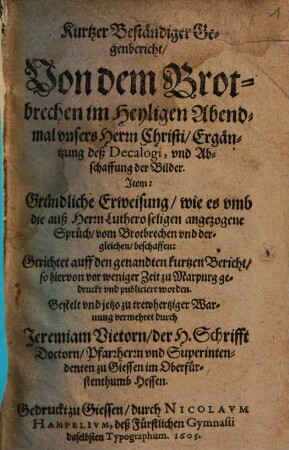 1
Kurtzer Beständiger Ge-
genbericht/
Von dem Brot-
brechen im Heyligen Abend-
mal vnsers Herrn Christi/ Ergän-
tzung deß Decalogi, vnd Ab-
schaffung der Bilder.
Item:
Gründliche Erweisung/ wie es vmb
die auß Herrn Luthero seligen angezogene
Sprüch/ vom Brotbrechen vnd der-
gleichen/ beschaffen:
Gerichtet auff den genandten kurtzen Bericht/
so hiervon vor weniger Zeit zu Marpurg ge-
druckt vnd publiciert worden.
Gestelt vnd jetzo zu trewhertziger War-
nung vermehret durch
Jeremiam Vietorn/ der H. Schrifft
Doctorn/ Pfarrherrn vnd Superinten-
denten zu Giessen im Oberfür-
stenthumb Hessen.
Gedruckt zu Giessen/ durch NICOLAVM
HAMPELIVM, deß Fürstlichen Gymnasii
daselbsten Typographum. 1605.